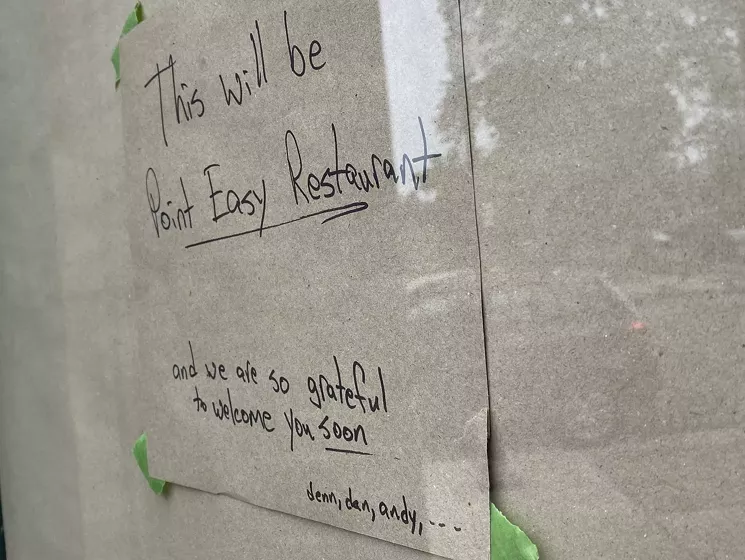 This will be
Point Easy Restaurant
and we are so grateful
to welcome you soon
denn, dan, andy, ---